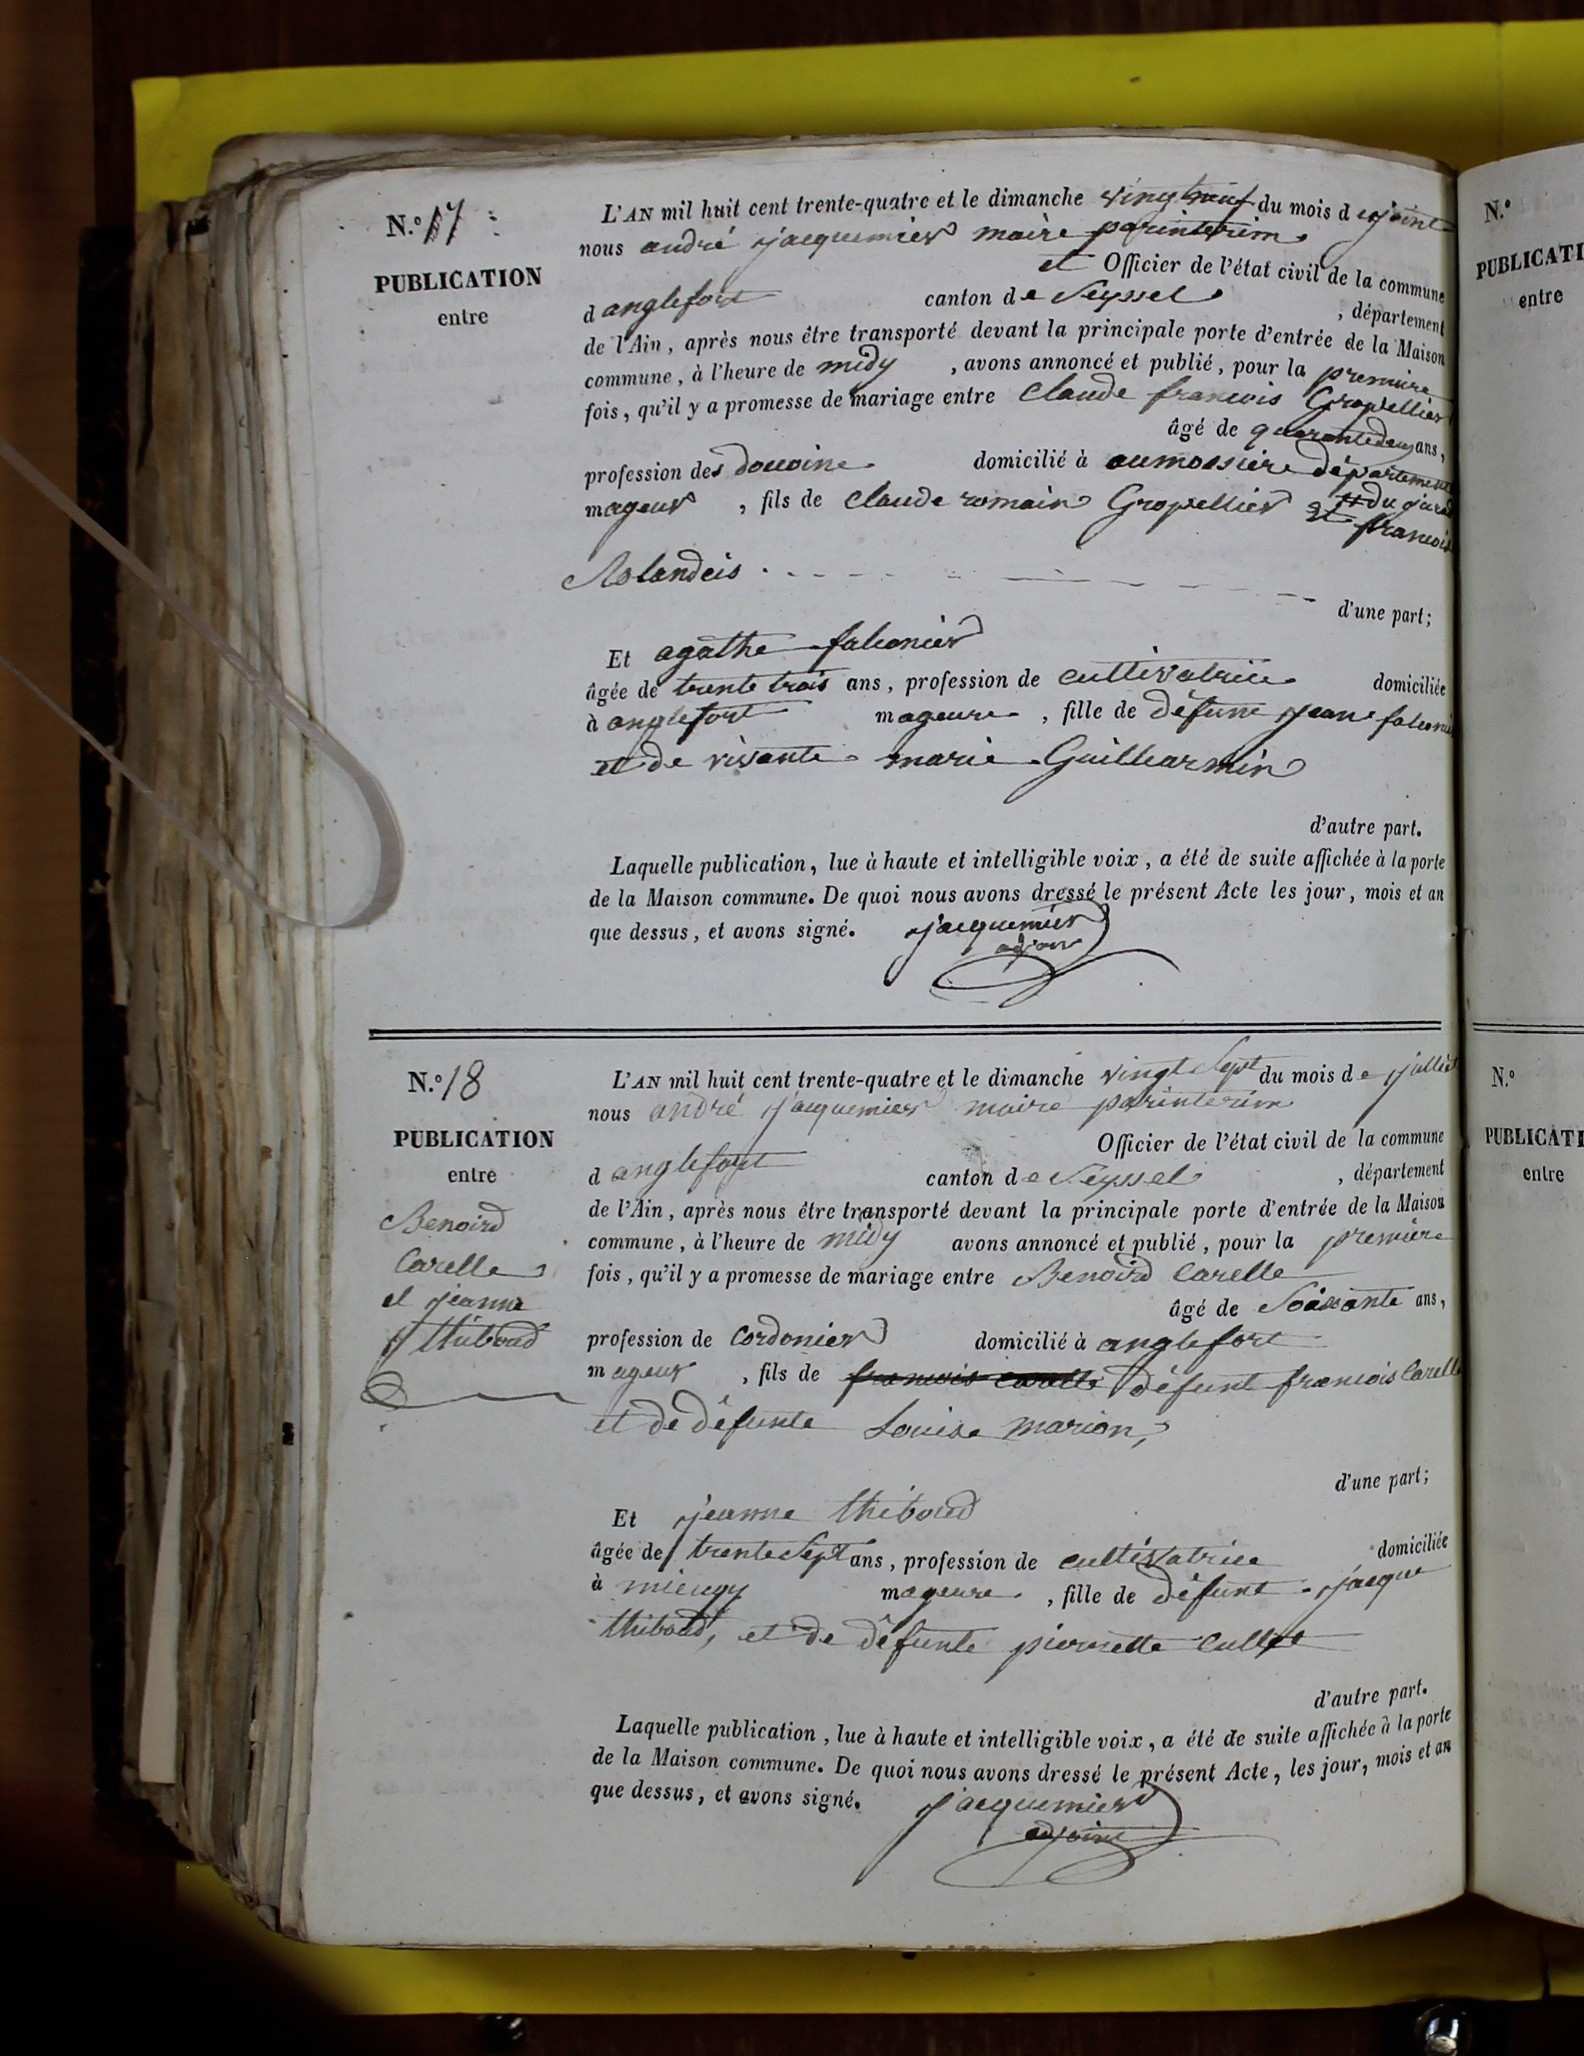 N.º 17
PUBLICATION
entre
L'AN mil huit cent trente-quatre et le dimanche vingt neuf du mois de
nous andré jacquemier maire parinterim
et Officier de l'état civil de la commune
d anglefort canton de Seyssel , département
de l'Ain, après nous être transporté devant la principale porte d'entrée de la Maison
commune, à l'heure de midy , avons annoncé et publié, pour la premiere
fois, qu'il y a promesse de mariage entre Claude francois Gropellier
âgé de quarantedeux ans,
profession des douoine domicilié à aumossiere département
du jura
mageur , fils de Claude romain Gropellier et francois
Rolandeis
d'une part;
Et agathe falconier
âgée de trente trois ans, profession de cultivatrice domiciliée
à anglefort mageure , fille de défunt jean falconi
et de vivante marie Guillearmin
d'autre part.
Laquelle publication, lue à haute et intelligible voix, a été de suite affichée à la porte
de la Maison commune. De quoi nous avons dressé le présent Acte les jour, mois et an
que dessus, et avons signé. jacquemier
adjoin
N.º 18
PUBLICATION
entre
Benoird
Carelle
et jeanne
thiboud
L'AN mil huit cent trente-quatre et le dimanche vingt Sept du mois de julliet
nous andré jacquemier maire parinterim
Officier de l'état civil de la commune
d anglefort canton de Seyssel , département
de l'Ain, après nous être transporté devant la principale porte d'entrée de la Maison
commune, à l'heure de midy avons annoncé et publié, pour la premiere
fois, qu'il y a promesse de mariage entre Benoird Carelle
âgé de Soissante ans,
profession de Cordonier domicilié à anglefort
mageur , fils de francois Carelle défunt francois Carelle
et de défunte Louise marion,
d'une part;
Et jeanne thiboud
âgée de trente Sept ans, profession de cultivatrice domiciliée
à mieugy mageure , fille de défunt jacque
thiboud, et de défunte pierrette Cullet
d'autre part.
Laquelle publication, lue à haute et intelligible voix, a été de suite affichée à la porte
de la Maison commune. De quoi nous avons dressé le présent Acte, les jour, mois et an
que dessus, et avons signé. jacquemier
adjoint
N.º
PUBLICATI
entre
N.º
PUBLICATI
entre